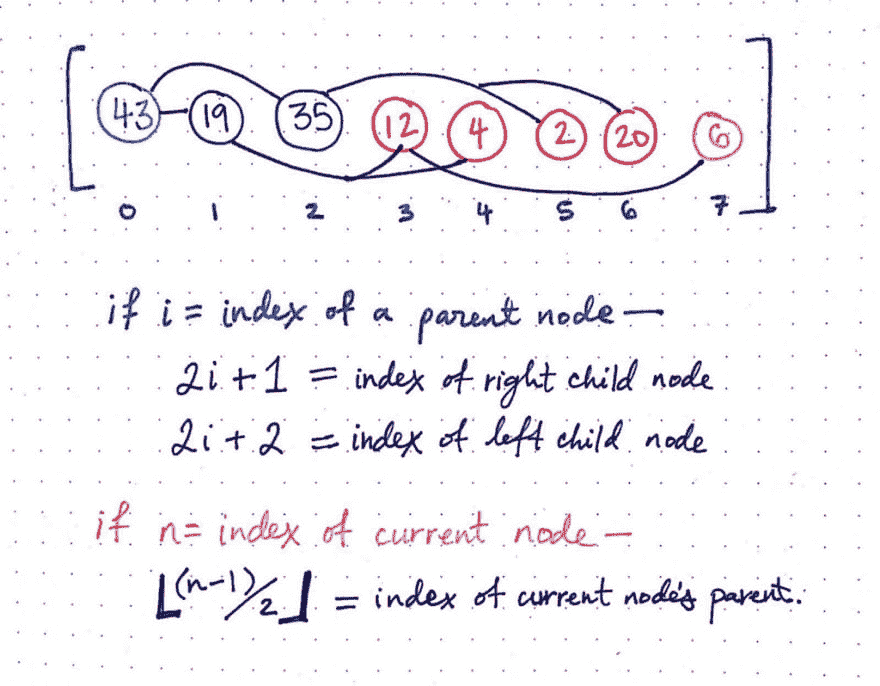 [ 43 19 35 12 4 2 20 6 ]
0 1 2 3 4 5 6 7
if i = index of a parent node —
2i + 1 = index of right child node
2i + 2 = index of left child node
if n = index of current node —
⌊(n-1)/2⌋ = index of current node's parent.